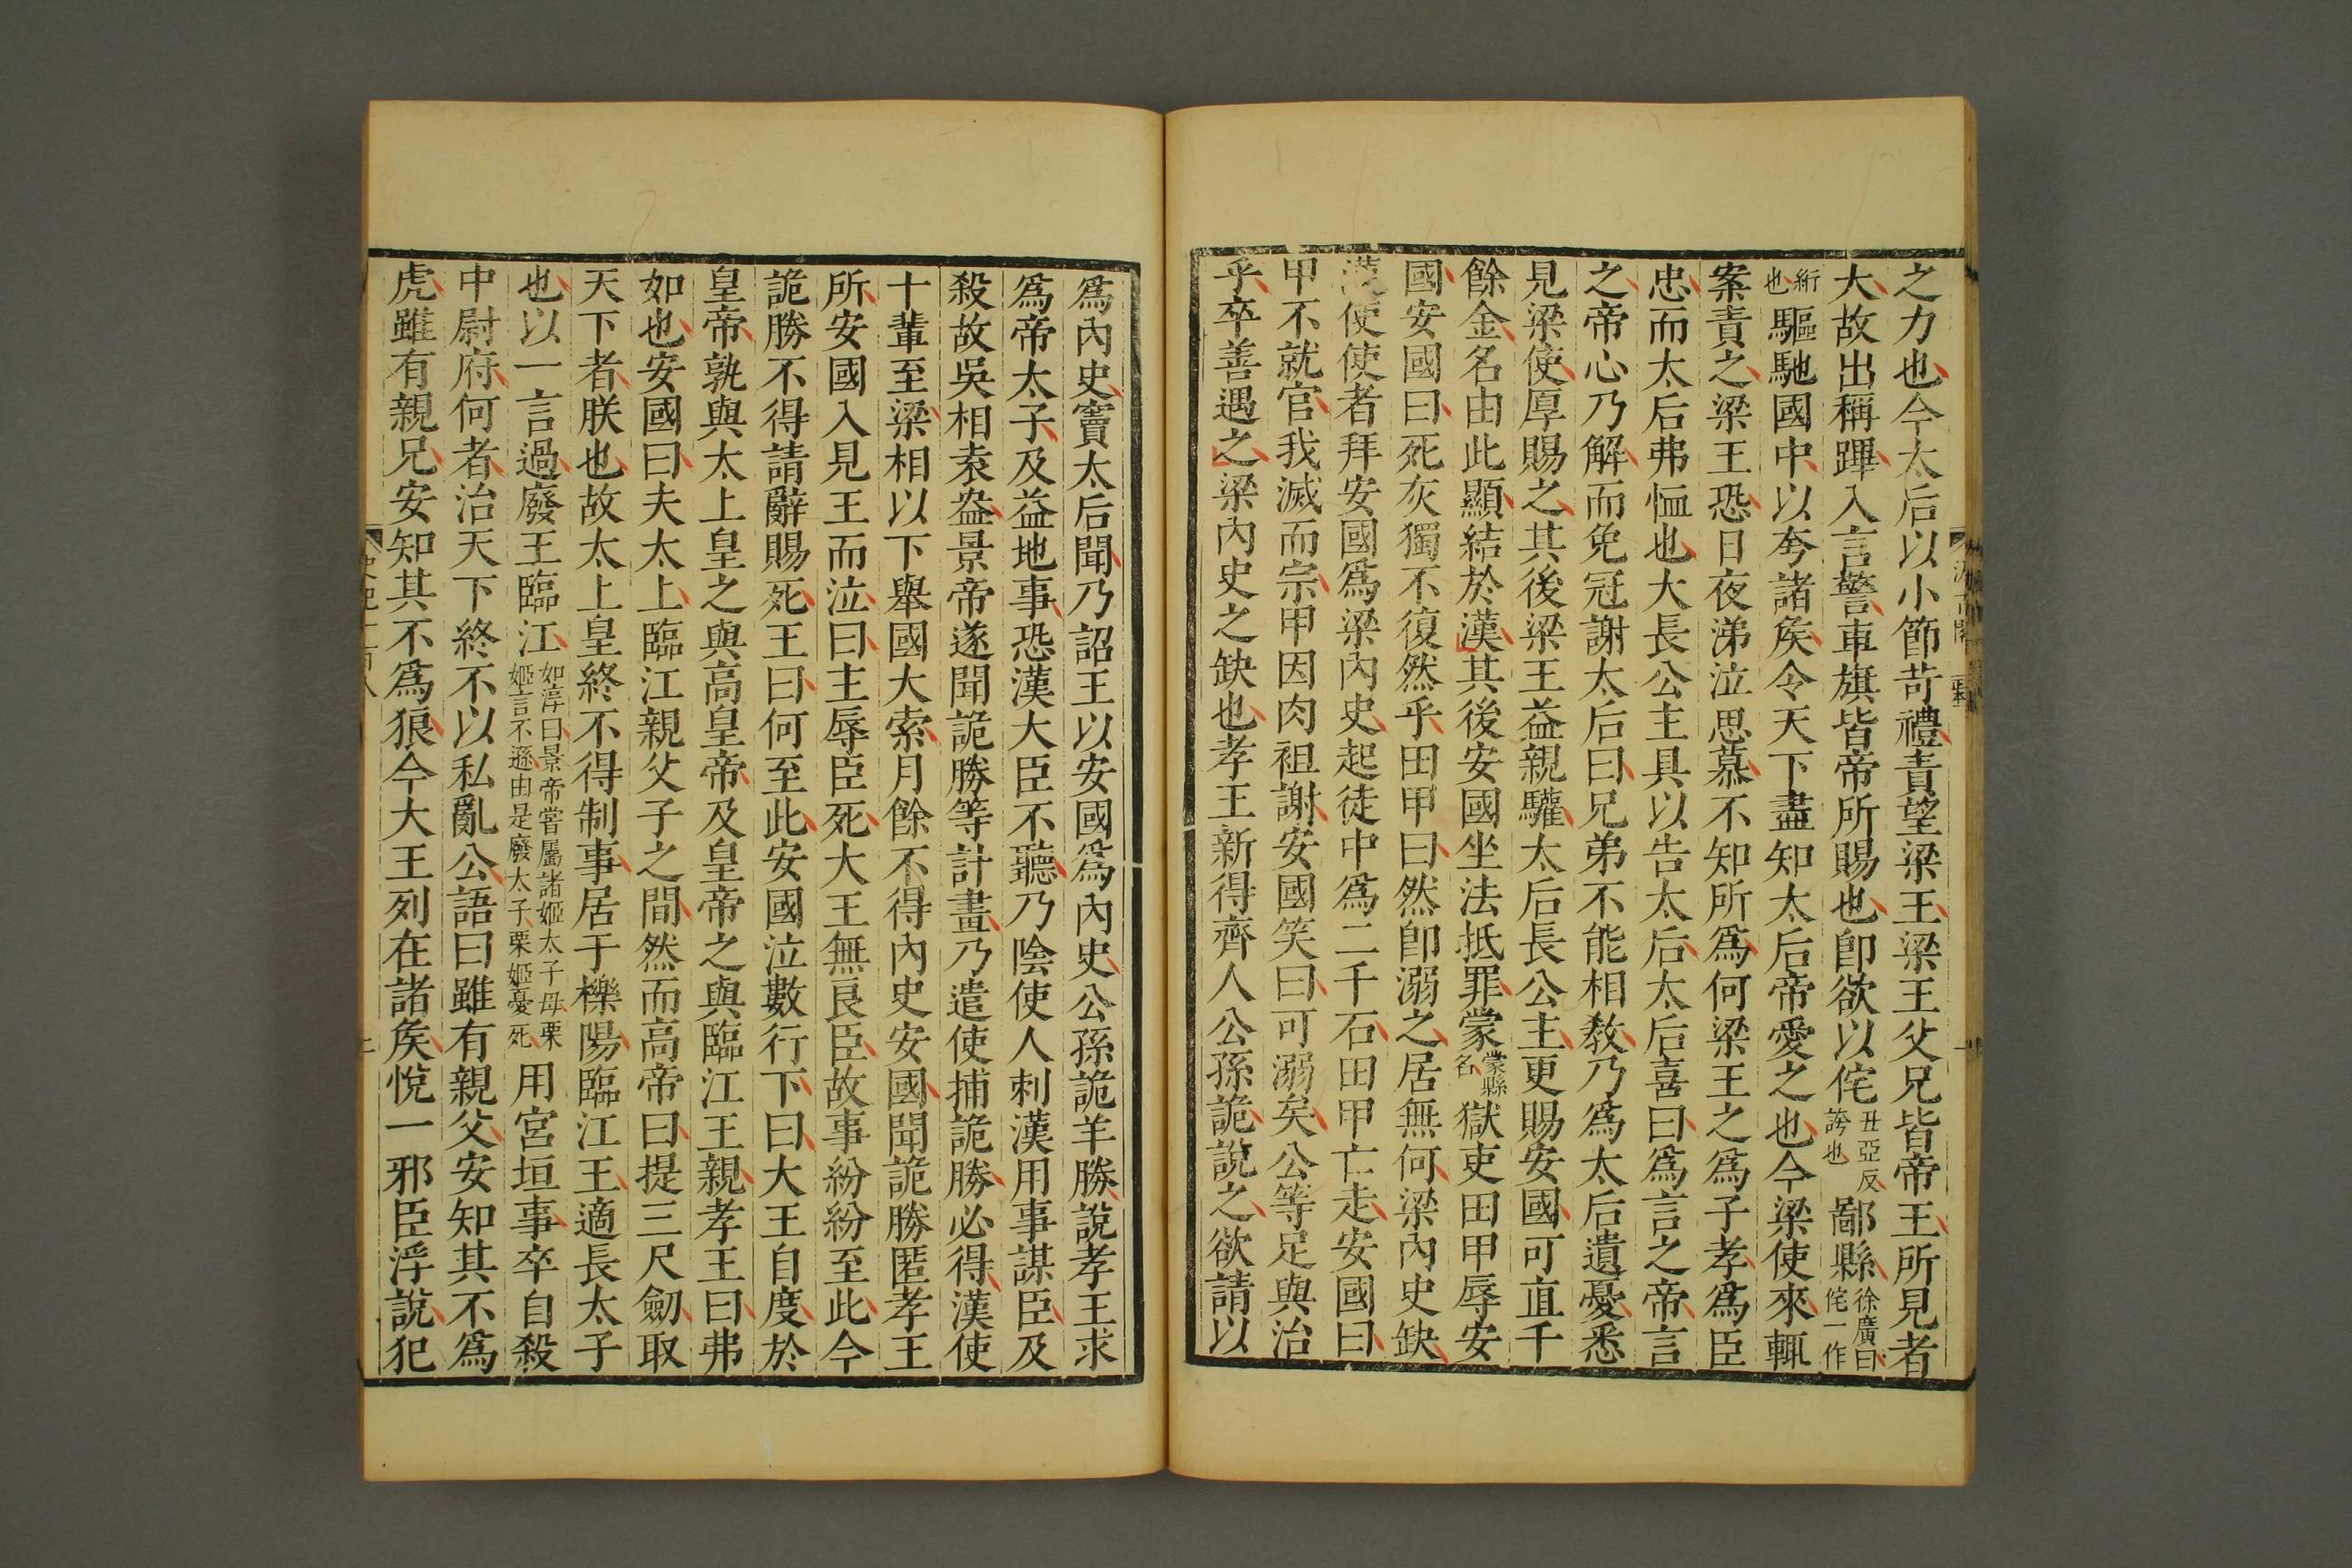 之力也今太后以小節苛禮責望梁王梁王父兄皆帝王所見者
大故出稱蹕入言警車旗皆帝所賜也卽欲以侘丑亞反誇也鄙縣徐廣曰侘一作
絎也驅馳國中以夸諸矦令天下盡知太后帝愛之也今梁使來輒
案責之梁王恐日夜涕泣思慕不知所爲何梁王之爲子孝爲臣
忠而太后弗恤也大長公主具以告太后太后喜曰爲言之帝言
之帝心乃解而免冠謝太后曰兄弟不能相敎乃爲太后遺憂悉
見梁使厚賜之其後梁王益親驩太后長公主更賜安國可直千
餘金名由此顯結於漢其後安國坐法抵罪蒙蒙縣名獄吏田甲辱安
國安國曰死灰獨不復然乎田甲曰然卽溺之居無何梁內史缺
漢使使者拜安國爲梁內史起徒中爲二千石田甲亡走安國曰
甲不就官我滅而宗甲因肉袒謝安國笑曰可溺矣公等足與治
乎卒善遇之梁內史之缺也孝王新得齊人公孫詭說之欲請以
爲內史竇太后聞乃詔王以安國爲內史公孫詭羊勝說孝王求
爲帝太子及益地事恐漢大臣不聽乃陰使人刺漢用事謀臣及
殺故吳相袁盎景帝遂聞詭勝等計畫乃遣使捕詭勝必得漢使
十輩至梁相以下舉國大索月餘不得內史安國聞詭勝匿孝王
所安國入見王而泣曰主辱臣死大王無良臣故事紛紛至此今
詭勝不得請辭賜死王曰何至此安國泣數行下曰大王自度於
皇帝孰與太上皇之與高皇帝及皇帝之與臨江王親孝王曰弗
如也安國曰夫太上臨江親父子之間然而高帝曰提三尺劒取
天下者朕也故太上皇終不得制事居于櫟陽臨江王適長太子
也以一言過廢王臨江如淳曰景帝嘗屬諸姬太子母栗姬言不遜由是廢太子栗姬憂死用宮垣事卒自殺
中尉府何者治天下終不以私亂公語曰雖有親父安知其不爲
虎雖有親兄安知其不爲狼今大王列在諸矦悅一邪臣浮說犯